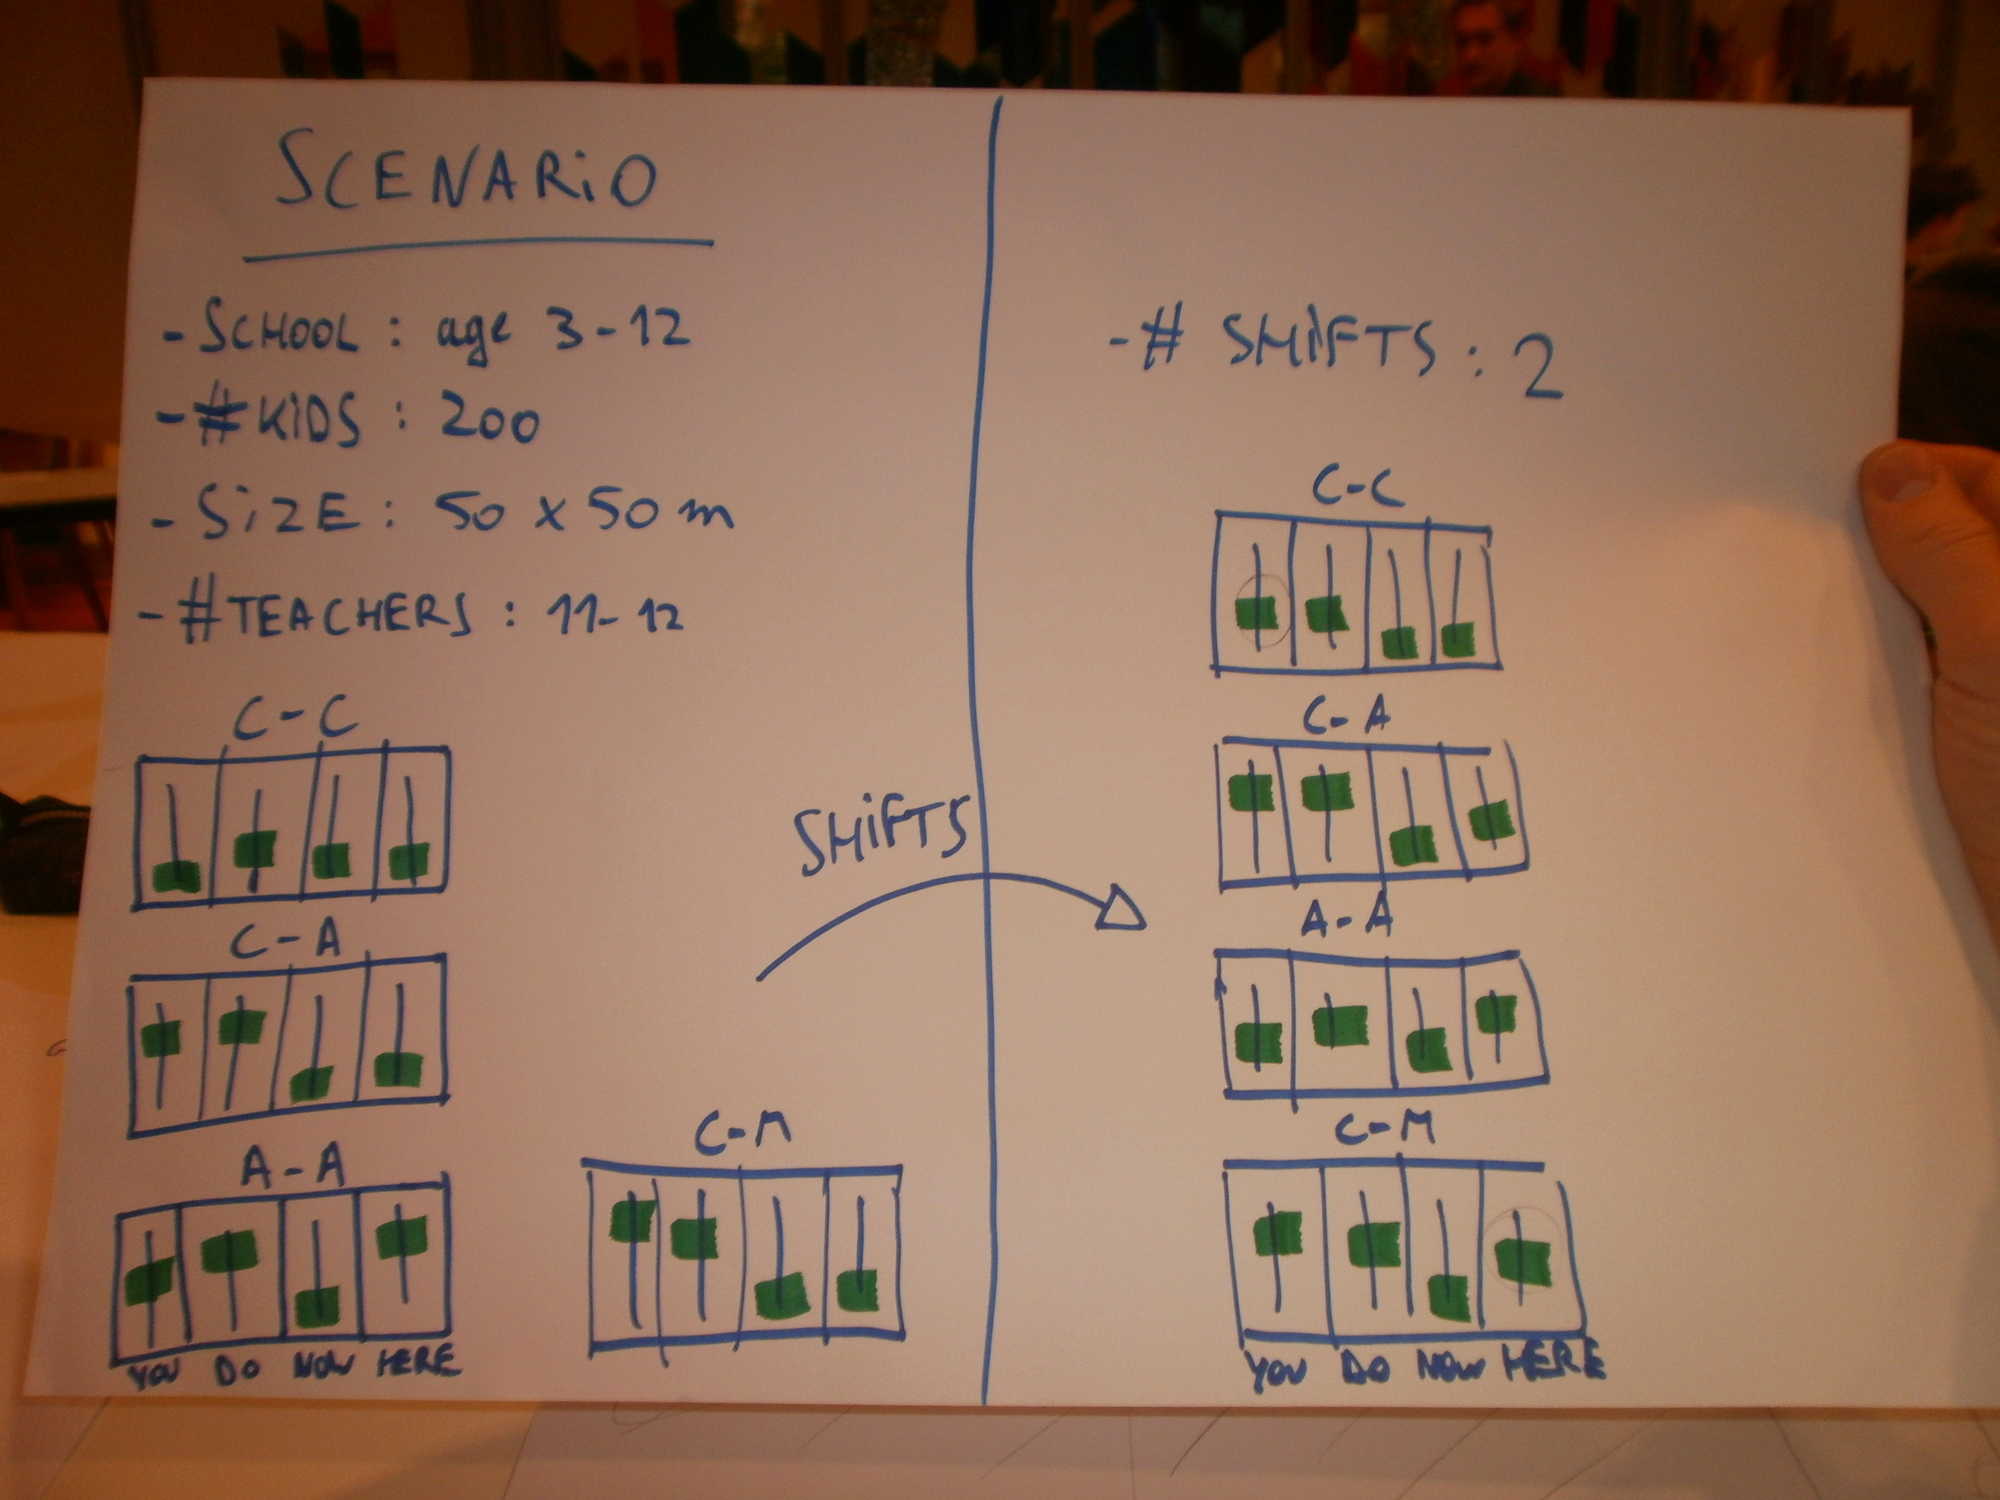 SCENARiO
- SCHOOL : age 3-12
- #KiDS : 200
- SiZE : 50 x 50 m
- #TEACHERS : 11-12
C-C
C-A
A-A
YOU DO NOW HERE
C-M
SHiFTS
- # SHiFTS : 2
C-C
C-A
A-A
C-M
YOU DO NOW HERE